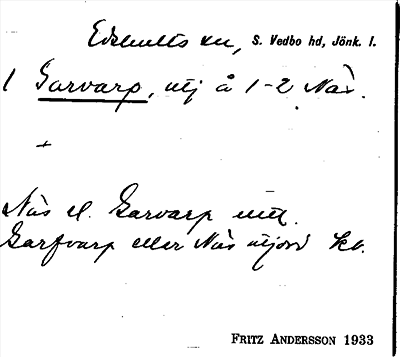 Edshults sn, S. Vedbo hd, Jönk. l.
1 Garvarp, utj å 1-2 Näs.
+
Näs el. Garvarp utj.
Garfvarp eller Näs utjord kb.
FRITZ ANDERSSON 1933